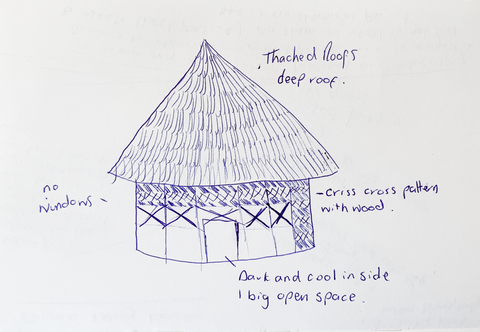 Thached Roofs
deep roof.
no
windows
criss cross pattern
with wood.
Dark and cool in side
1 big open space.